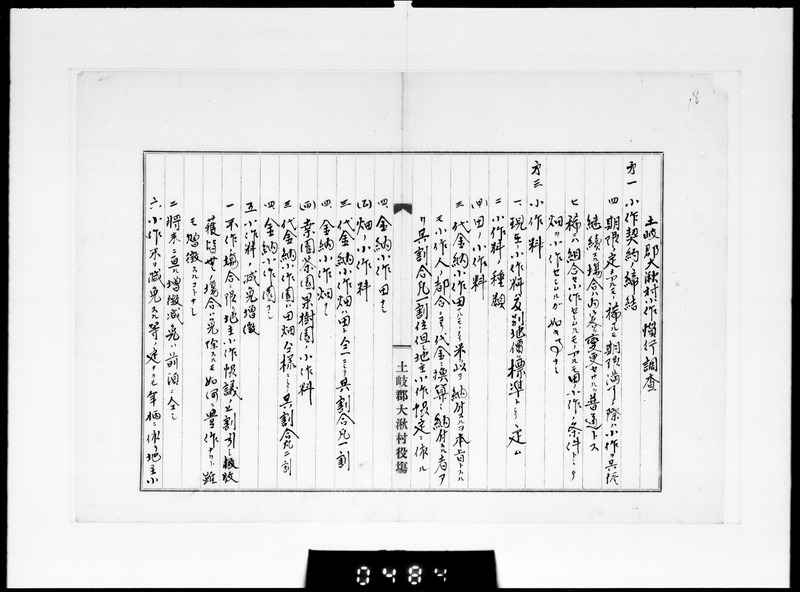 土岐郡大湫村小作慣行調査
第一 小作契約ノ締結
四 期限ヲ定ムルモノ稀ニシテ期限満了ノ際ハ小作ヲ其侭
継続スル場合内容ヲ変更セサルヲ普通トス
七 稀ニハ組合ニ小作セシムルモノアルモ田小作ノ条件トシテ
畑ヲ小作セシムルガ如キコトナシ
第三 小作料
一、現在小作料反別地価標準トシテ定ム
二 小作料ノ種類
(イ)田ノ小作料
三 代金納小作田ハ 米以テ納付スルヲ本旨トスル
モ小作人ノ都合ニヨリ代金換算シ納付スル者ア
リ其割合凡一割位但シ地主小作協定ニ依ル
四 金納小作田ナシ
(ロ)畑ノ小作料
三 代金納小作畑ハ田ト仝一ニシテ其割合凡一割
四 金納小作畑ナシ
(ハ)桑園茶園果樹園ノ小作料
三 代金納小作園ハ田畑仝様ニシテ其割合凡二割
四 金納小作園ナシ
五 小作料ノ減免増徴
一 不作ノ場合ハ地主小作協議ノ上割引シ
収穫皆無ノ場合ハ免除スルモ如何豊作ナリト雖
モ増徴スルコトナシ
二 将来ニ亘ル増徴減免ハ前項ニ仝シ
六 小作米ヲ減免スル等ノ定ナクモ年柄ニ依リ地主小
土岐郡大湫村役場
18
0484